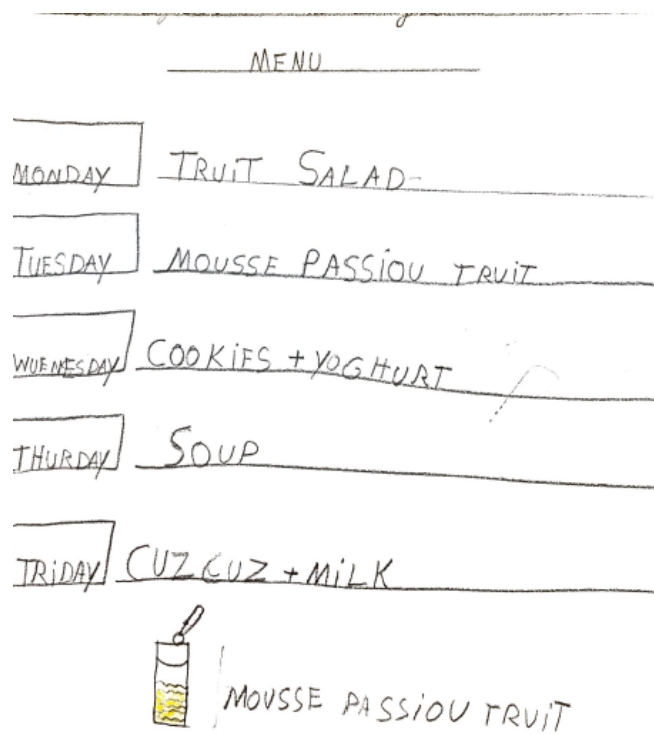 MENU
MONDAY TRUIT SALAD-
TUESDAY MOUSSE PASSIOU TRUIT
WUENESDAY COOKIES + YOGHURT
THURDAY SOUP
TRIDAY CUZCUZ + MILK
MOUSSE PASSIOU TRUIT